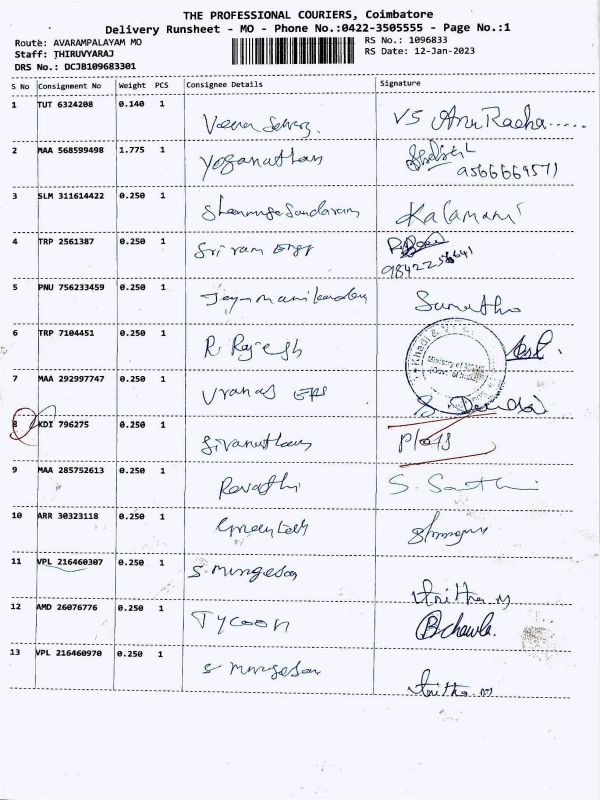 THE PROFESSIONAL COURIERS, Coimbatore
Delivery Runsheet - MO - Phone No.:0422-3505555 - Page No.:1
Route: AVARAMPALAYAM MO
RS No.: 1096833
Staff: THIRUVYARAJ
RS Date: 12-Jan-2023
DRS No.: DCJB109683301
S No Consignment No Weight PCS Consignee Details Signature
1 TUT 6324208 0.140 1
VS Anu Raeha.....
2 MAA 568599498 1.775 1 Yoganathan
9566669571
3 SLM 311614422 0.250 1 Shanmuga Sundaram Kalamani
4 TRP 2561387 0.250 1 Sri ram Engg
5 PNU 756233459 0.250 1 Jeymanikandan
6 TRP 7104451 0.250 1 R. Rajesh
7 MAA 292997747 0.250 1
8 KDI 796275 0.250 1 Sivanatham
9 MAA 285752613 0.250 1 Revathi S. Santhi
10 ARR 30323118 0.250 1
11 VPL 216460307 0.250 1 S. Murugesan
Anitha M
12 AMD 26076776 0.250 1 Tycoon B chawla.
13 VPL 216460970 0.250 1 S Murugesan
Anitha M